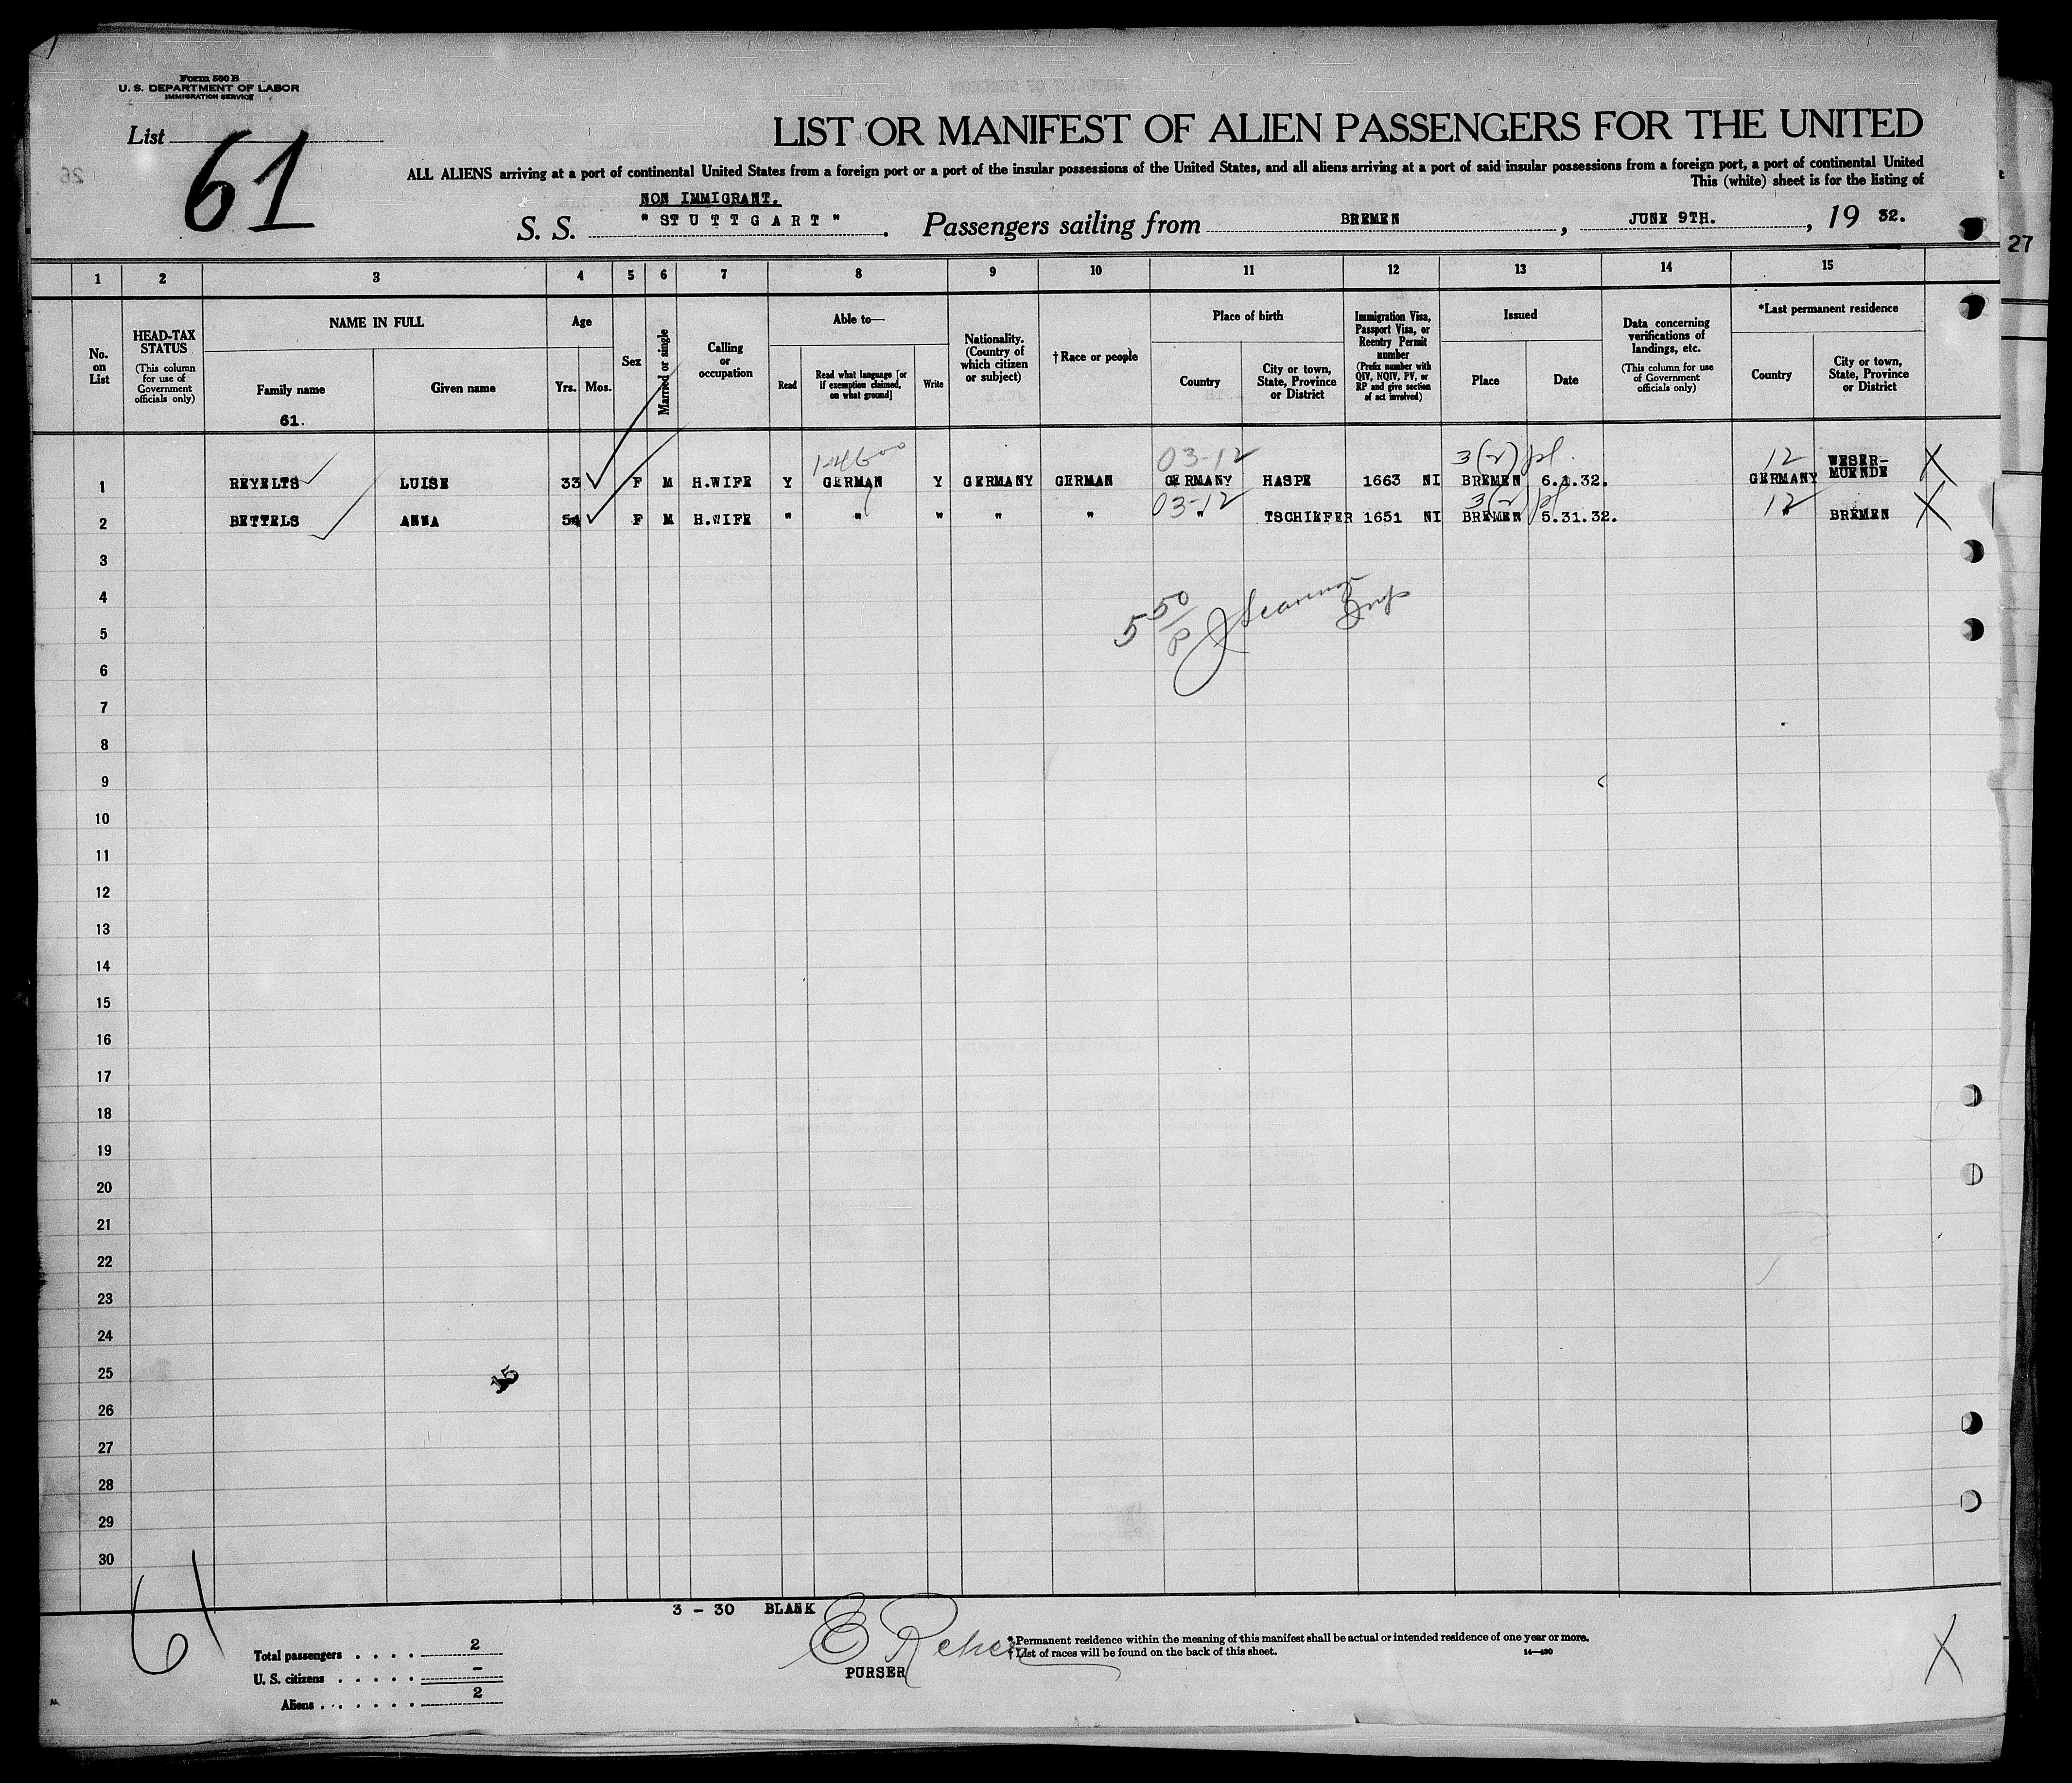 Form 500 B
U. S. DEPARTMENT OF LABOR
IMMIGRATION SERVICE
List
61
LIST OR MANIFEST OF ALIEN PASSENGERS FOR THE UNITED
ALL ALIENS arriving at a port of continental United States from a foreign port or a port of the insular possessions of the United States, and all aliens arriving at a port of said insular possessions from a foreign port, a port of continental United
This (white) sheet is for the listing of
NON IMMIGRANT.
S. S. "STUTTGART". Passengers sailing from BREMEN, JUNE 9TH., 19 32.
27
1 2 3 4 5 6 7 8 9 10 11 12 13 14 15
No. on List
HEAD-TAX STATUS
(This column for use of Government officials only)
NAME IN FULL
Family name
61.
Given name
Age
Yrs. Mos.
Sex
Married or single
Calling or occupation
Able to—
Read
Read what language [or if exemption claimed, on what ground]
Write
Nationality. (Country of which citizen or subject)
†Race or people
Place of birth
Country
City or town, State, Province or District
Immigration Visa, Passport Visa, or Reentry Permit number
(Prefix number with QIV, NQIV, PV, or RP and give section of act involved)
Issued
Place
Date
Data concerning verifications of landings, etc.
(This column for use of Government officials only)
*Last permanent residence
Country
City or town, State, Province or District
03-12 3(2) pl. 12
1 REYELTS LUISE 33 F M H.WIFE Y GERMAN Y GERMANY GERMAN GERMANY HASPE 1663 NI BREMEN 6.1.32. GERMANY WESER-MUENDE X
03-12 3(2) pl 12
2 BETTELS ANNA 54 F M H.WIFE " " " " " " TSCHIEFER 1651 NI BREMEN 5.31.32. " BREMEN X
3
4
5
6
7
8
9
10
11
12
13
14
15
16
17
18
19
20
21
22
23
24
25
26
27
28
29
30
61
3 - 30 BLANK
Total passengers . . . . 2
U. S. citizens . . . . . -
Aliens . . . . . . . 2
PURSER
*Permanent residence within the meaning of this manifest shall be actual or intended residence of one year or more.
†List of races will be found on the back of this sheet.
14—430
X